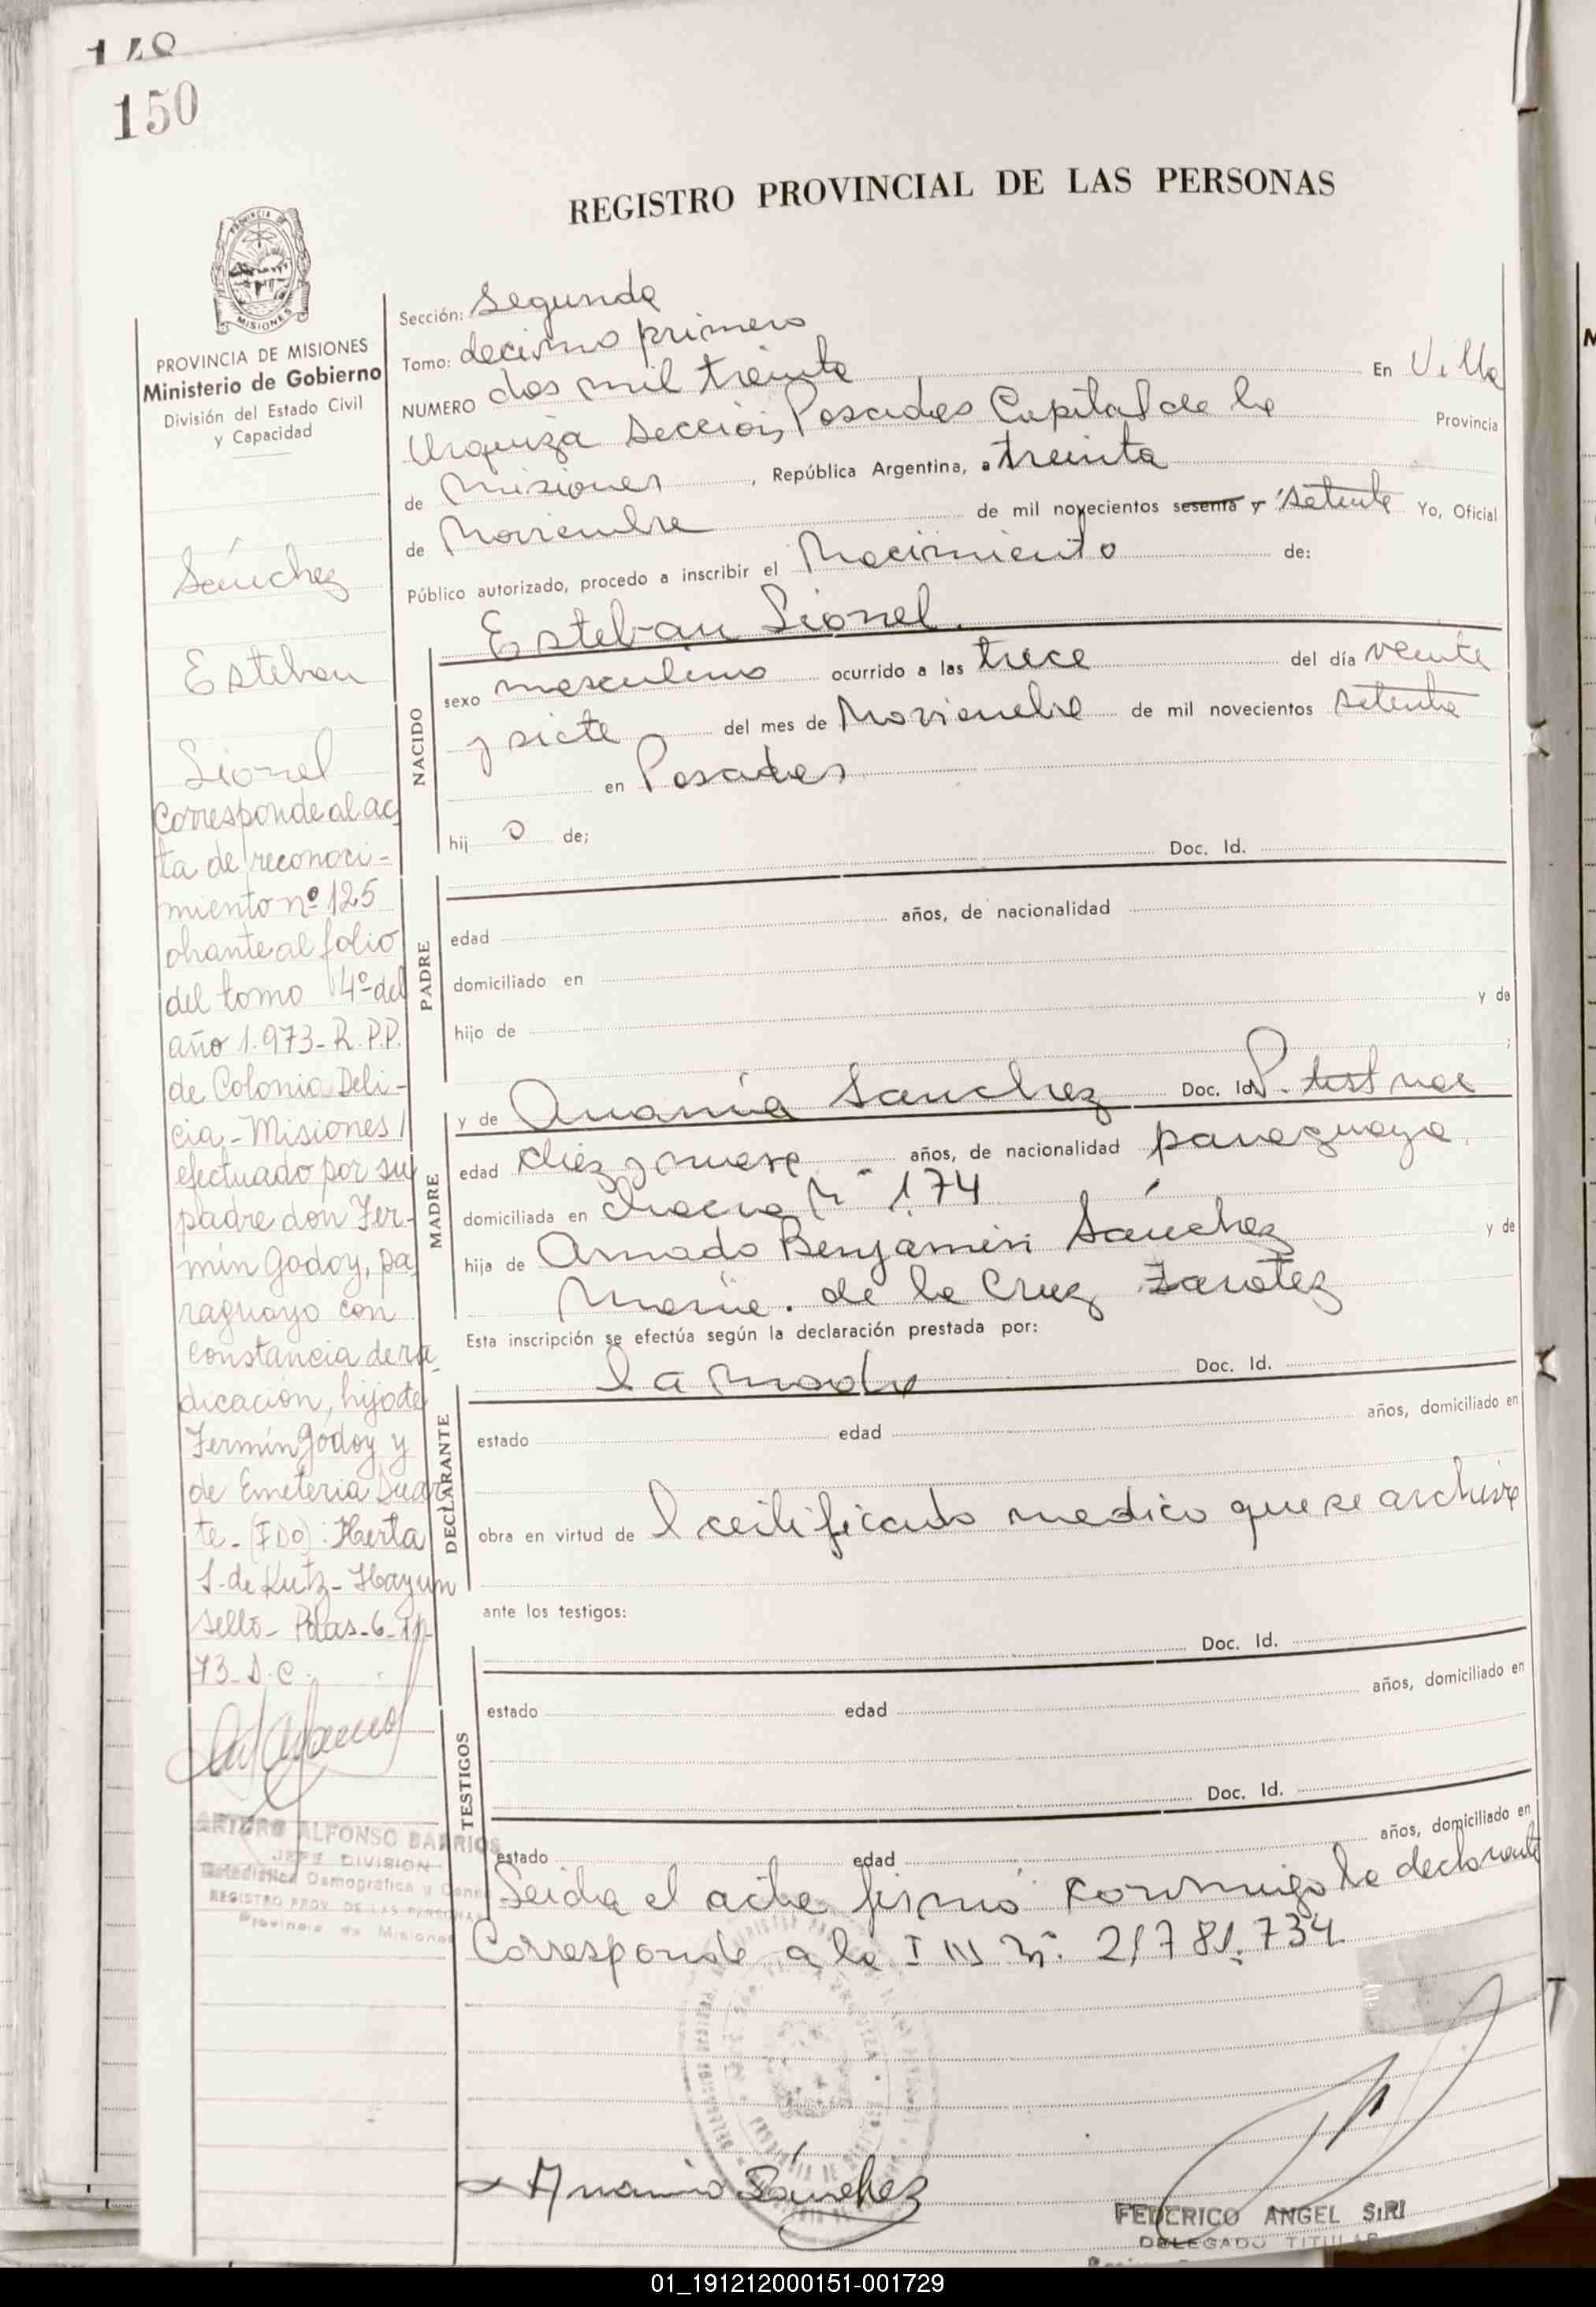 148
150
REGISTRO PROVINCIAL DE LAS PERSONAS
PROVINCIA DE
MISIONES
PROVINCIA DE MISIONES
Ministerio de Gobierno
División del Estado Civil
y Capacidad
Sección: Segunda
Tomo: decimo primero
NUMERO dos mil treinta En Villa
Urquiza Sección, Posadas Capital de la Provincia
de Misiones, República Argentina, a treinta
de Noviembre de mil novecientos sesenta y setenta Yo, Oficial
Público autorizado, procedo a inscribir el Nacimiento de:
Esteban Lionel.
NACIDO
sexo masculino ocurrido a las trece del día veinte
y siete del mes de Noviembre de mil novecientos setenta
en Posadas
hij o de;
Doc. Id.
PADRE
edad años, de nacionalidad
domiciliado en
hijo de y de
;
MADRE
y de Anania Sanchez Doc. Id.
edad diez y nueve años, de nacionalidad paraguaya
domiciliada en chacra Nº 174
hija de Amado Benjamin Sánchez y de
Maria de la Cruz Zarotez
Esta inscripción se efectúa según la declaración prestada por:
la madre Doc. Id.
DECLARANTE
estado edad años, domiciliado en
obra en virtud de l certificado medico que se archiva
ante los testigos:
Doc. Id.
TESTIGOS
estado edad años, domiciliado en
Doc. Id.
estado edad años, domiciliado en
Leida el acta firmó conmigo la declarante
Corresponde a la Nº. 21781.734
Anania Sánchez
FEDERICO ANGEL SIRI
DELEGADO TITULAR
Sánchez
Esteban
Lionel
Corresponde al ac
ta de reconoci-
miento nº 125
obrante al folio
del tomo 4º del
año 1.973- R.P.P.
de Colonia Deli-
cia - Misiones/
efectuado por su
padre don Fer-
min Godoy, pa
raguayo con
constancia de ra
dicación, hijo de
Fermín Godoy y
de Emeteria Duar
te- (FDO): Herta
S. de Kutz - Hay un
sello - Pdas-6-11-
73- D.C.
ARTURO ALFONSO BARRIOS
JEFE DIVISION
Estadistica Demografica y
REGISTRO PROV. DE LAS PERSONAS
Provincia de Misiones
01_191212000151-001729